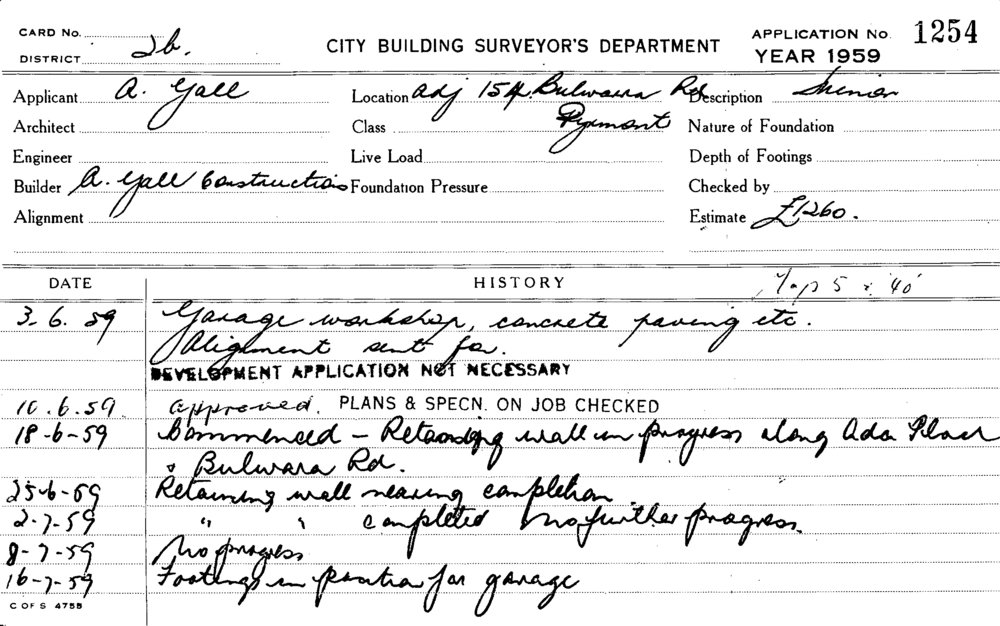 CARD No.
DISTRICT 2b.
CITY BUILDING SURVEYOR'S DEPARTMENT
APPLICATION No. 1254
YEAR 1959
Applicant A. Gall
Location adj 154 Bulwarra Rd
Pyrmont
Description
Architect
Class
Nature of Foundation
Engineer
Live Load
Depth of Footings
Builder A. Gall Constructions
Foundation Pressure
Checked by
Alignment
Estimate £1260.
DATE
HISTORY
Map 5 & 40
3.6.59 Garage workshop, concrete paving etc.
Alignment sent for.
DEVELOPMENT APPLICATION NOT NECESSARY
10.6.59. approved. PLANS & SPECN. ON JOB CHECKED
18-6-59 Commenced – Retaining wall in progress along Ada Place
& Bulwara Rd.
25-6-59 Retaining wall nearing completion.
2-7-59 " " completed no further progress.
8-7-59 No progress
16-7-59 Footings in position for garage
C OF S 4755